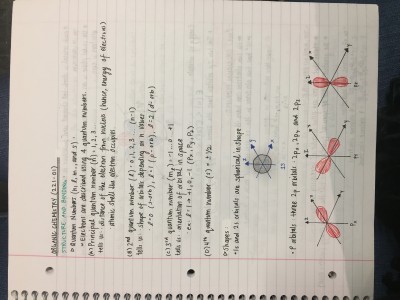 ORGANIC CHEMISTRY (221:01)
STRUCTURE AND BONDING
Quantum Numbers (n, l, m, and s):
- Electrons are described using 4 quantum numbers.
(A) Principal quantum number (n): 1, 2, 3...
tells us: distance of the electron from nucleus (hence, energy of electron)
atomic shell the electron occupies
(B) 2nd quantum number (l): 0, 1, 2, 3 ... (n-1)
tells us: shape of orbital depending on n values
l=0 (s-orb), l=1 (p-orb), l=2 (d-orb)
(C) 3rd quantum number (m): -l...0...+l
tells us: orientation of orbital in space
ex: l=1 → +1, 0, -1 (Px, Py, Pz)
(D) 4th quantum number (s): ± 1/2
Shapes:
1s and 2s orbitals are spherical in shape:
z
y
x
1s
- P orbitals: three 2p orbitals: 2px, 2py, and 2pz
z y x
z y x
z y x
Px
Py
Pz